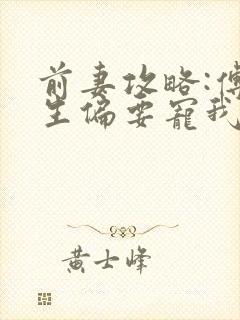 前妻攻略:傅
生偏要宠我
黄士峰